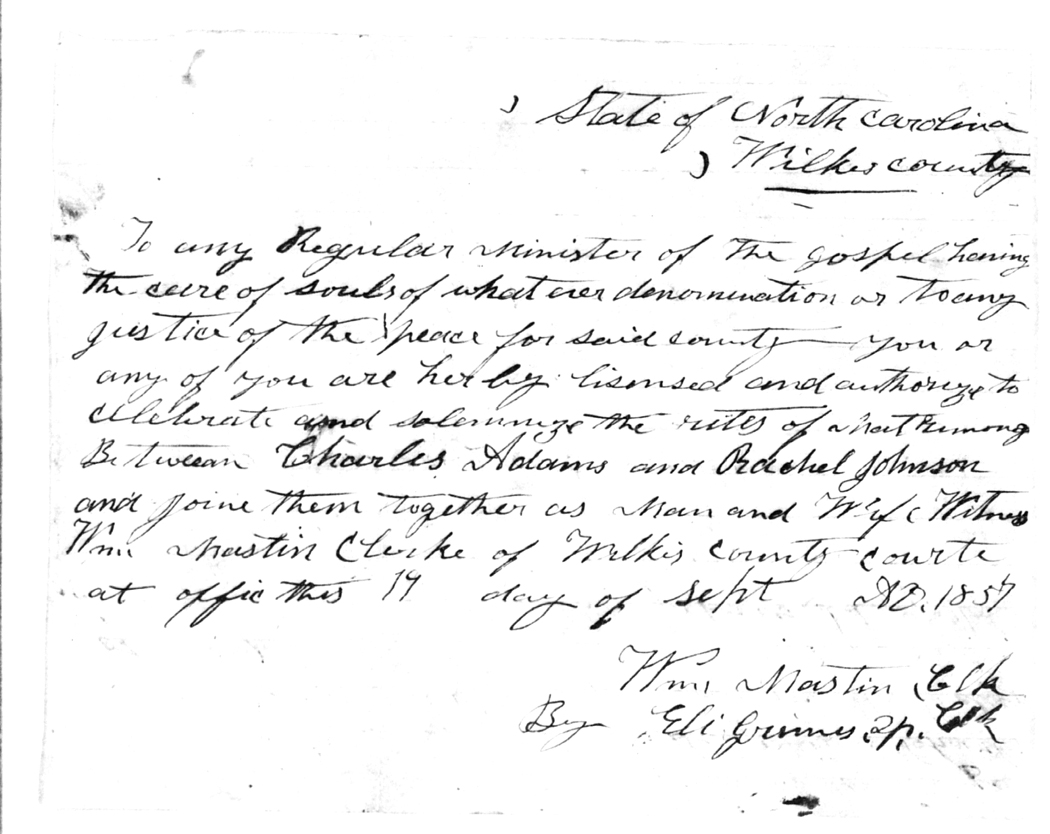 State of North carolina
Wilkes county
To any Regular Minister of the gospel having
the care of souls of what ever denomination or to any
justice of the peace for said county you or
any of you are herby lisensed and authorize to
celebrate and solemnize the rites of Matrimony
Between Charles Adams and Rachel Johnson
and joine them together as Man and Wife Witness
Wm Mastin Clerke of Wilkis county courte
at offic this 19 day of sept AD. 1857
Wm Mastin Clk
By Eli Grimes Clk